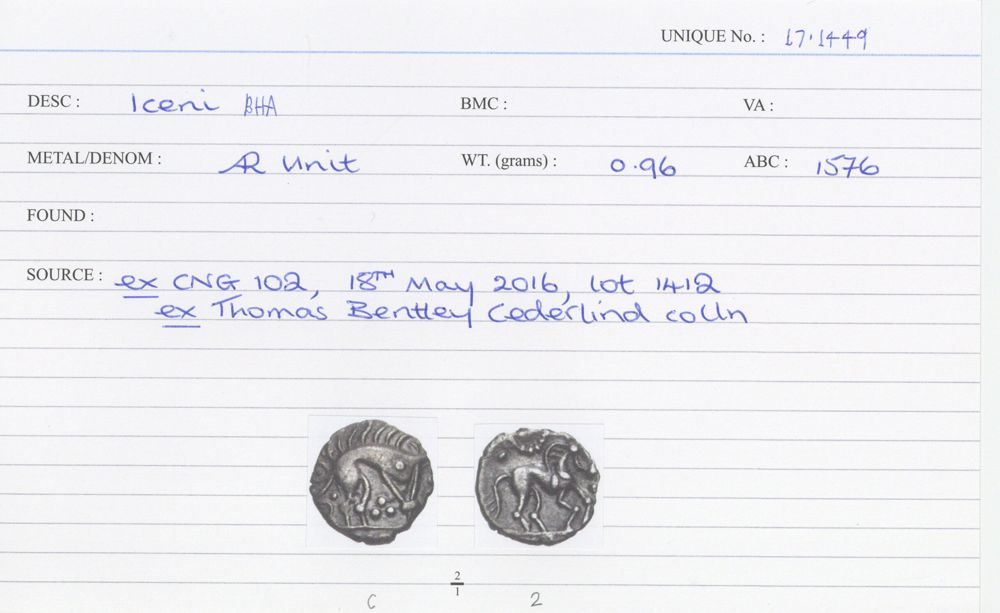 UNIQUE No. : 17.1449
DESC : Iceni BHA BMC : VA :
METAL/DENOM : AR Unit WT. (grams) : 0.96 ABC : 1576
FOUND :
SOURCE : ex CNG 102, 18TH May 2016, lot 1412
ex Thomas Bentley Cederlind colln
2
1
C 2